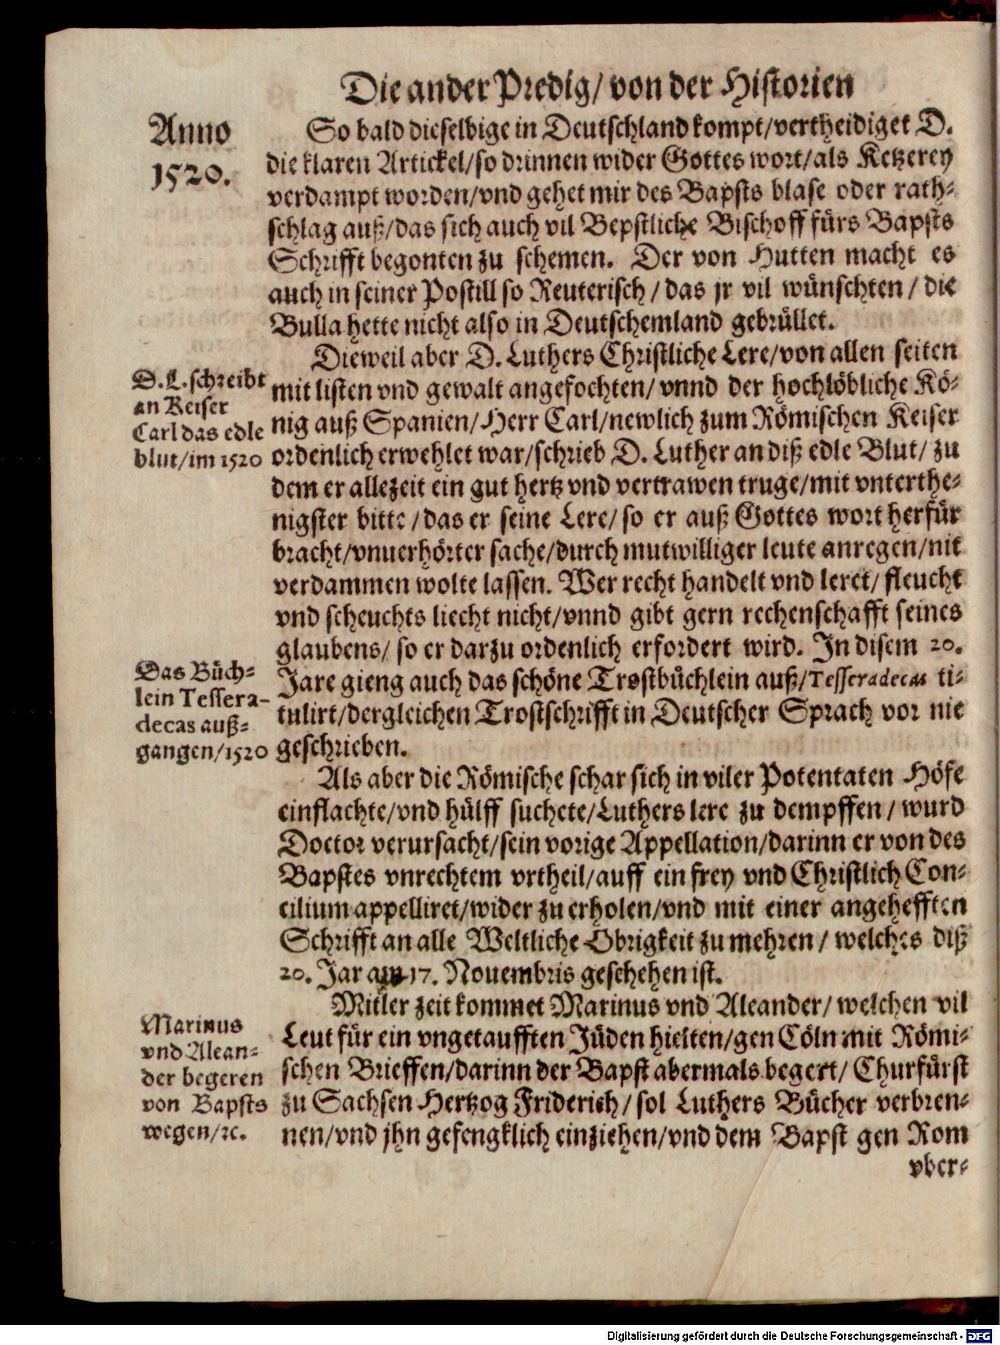 Die ander Predig/ von der Historien
Anno
1520.
So bald dieselbige in Deutschland kompt/vertheidiget D.
die klaren Artickel/so drinnen wider Gottes wort/als Ketzerey
verdampt worden/vnd gehet mir des Bapsts blase oder rath-
schlag auß/das sich auch vil Bepstliche Bischoff fürs Bapsts
Schrifft begonten zu schemen. Der von Hutten macht es
auch in seiner Postill so Reuterisch / das jr vil wünschten / die
Bulla hette nicht also in Deutschemland gebrüllet.
D. L. schreibt
an Keiser
Carl das edle
blut/im 1520
Dieweil aber D. Luthers Christliche Lere/von allen seiten
mit listen vnd gewalt angefochten/ vnnd der hochlöbliche Kö-
nig auß Spanien/Herr Carl/newlich zum Römischen Keiser
ordenlich erwehlet war/schrieb D. Luther an diß edle Blut/ zu
dem er allezeit ein gut hertz vnd vertrawen truge/mit vnterthe-
nigster bitte /das er seine Lere/ so er auß Gottes wort herfür
bracht/vnuerhörter sache/durch mutwilliger leute anregen/nit
verdammen wolte lassen. Wer recht handelt vnd leret/ fleucht
vnd scheuchts liecht nicht/vnnd gibt gern rechenschafft seines
glaubens/ so er darzu ordenlich erfordert wird. In disem 20.
Jare gieng auch das schöne Trostbüchlein auß/Tesseradecas ti-
tulirt/dergleichen Trostschrifft in Deutscher Sprach vor nie
geschrieben.
Das Büch-
lein Tessera-
decas auß-
gangen/1520
Als aber die Römische schar sich in viler Potentaten Höfe
einflachte/vnd hülff suchete/Luthers lere zu dempffen / wurd
Doctor verursacht/sein vorige Appellation/darinn er von des
Bapstes vnrechtem vrtheil/auff ein frey vnd Christlich Con-
cilium appelliret/wider zu erholen/vnd mit einer angehefften
Schrifft an alle Weltliche Obrigkeit zu mehren / welches diß
20. Jar am 17. Nouembris geschehen ist.
Marinus
vnd Alean-
der begeren
von Bapsts
wegen/ꝛc.
Mitler zeit kommet Marinus vnd Aleander/ welchen vil
Leut für ein vngetaufften Jüden hielten/gen Cöln mit Römi-
schen Brieffen/darinn der Bapst abermals begert/ Churfürst
zu Sachsen Hertzog Friderich/ sol Luthers Bücher verbren-
nen/vnd jhn gefengklich einziehen/vnd dem Bapst gen Rom
vber-
Digitalisierung gefördert durch die Deutsche Forschungsgemeinschaft - DFG